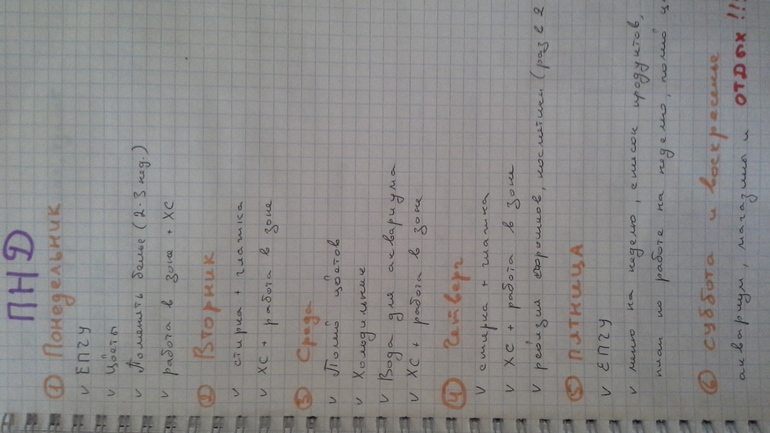 ПНД
① Понедельник
v ЕПГУ
v Цветы
v Поменять белье (2-3 нед.)
v работа в зоне + ХС
② Вторник
v стирка + глажка
v ХС + работа в зоне
③ Среда
v Полив цветов
v Холодильник
v Вода для аквариума
v ХС + работа в зоне
④ Четверг
v стирка + глажка
v ХС + работа в зоне
v ревизия порошков, косметики (раз в 2
⑤ Пятница
v ЕПГУ
v меню на неделю, список продуктов,
план по работе на неделю, полив ц
⑥ суббота и воскресенье
аквариум, магазины и ОТДЫХ!!!